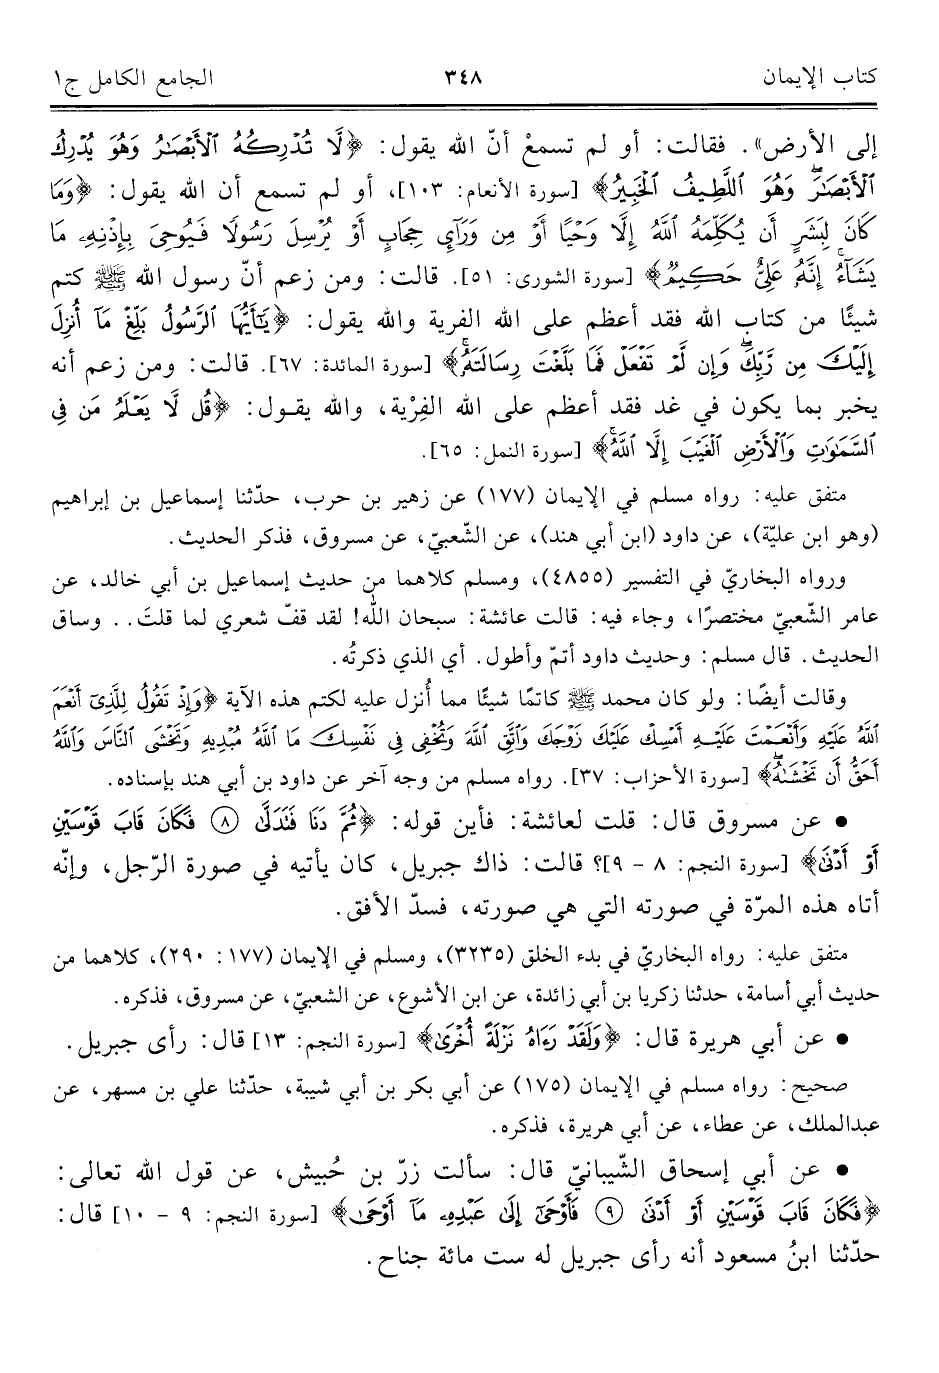 كتاب الإيمان ٣٤٨ الجامع الكامل ج١
إلى الأرض». فقالت: أو لم تسمعْ أنّ الله يقول: ﴿لَّا تُدْرِكُهُ ٱلْأَبْصَٰرُ وَهُوَ يُدْرِكُ
ٱلْأَبْصَٰرَۖ وَهُوَ ٱللَّطِيفُ ٱلْخَبِيرُ﴾ [سورة الأنعام: ١٠٣]، أو لم تسمع أن الله يقول: ﴿وَمَا
كَانَ لِبَشَرٍ أَن يُكَلِّمَهُ ٱللَّهُ إِلَّا وَحْيًا أَوْ مِن وَرَآئِ حِجَابٍ أَوْ يُرْسِلَ رَسُولًا فَيُوحِىَ بِإِذْنِهِۦ مَا
يَشَآءُۚ إِنَّهُۥ عَلِىٌّ حَكِيمٌ﴾ [سورة الشورى: ٥١]. قالت: ومن زعم أنّ رسول الله ﷺ كتم
شيئًا من كتاب الله فقد أعظم على الله الفرية والله يقول: ﴿يَٰٓأَيُّهَا ٱلرَّسُولُ بَلِّغْ مَآ أُنزِلَ
إِلَيْكَ مِن رَّبِّكَۖ وَإِن لَّمْ تَفْعَلْ فَمَا بَلَّغْتَ رِسَالَتَهُۥۚ﴾ [سورة المائدة: ٦٧]. قالت: ومن زعم أنه
يخبر بما يكون في غد فقد أعظم على الله الفِرْية، والله يقـول: ﴿قُل لَّا يَعْلَمُ مَن فِى
ٱلسَّمَٰوَٰتِ وَٱلْأَرْضِ ٱلْغَيْبَ إِلَّا ٱللَّهُۚ﴾ [سورة النمل: ٦٥].
متفق عليه: رواه مسلم في الإيمان (١٧٧) عن زهير بن حرب، حدّثنا إسماعيل بن إبراهيم
(وهو ابن عليّة)، عن داود (ابن أبي هند)، عن الشّعبيّ، عن مسروق، فذكر الحديث.
ورواه البخاريّ في التفسير (٤٨٥٥)، ومسلم كلاهما من حديث إسماعيل بن أبي خالد، عن
عامر الشّعبيّ مختصرًا، وجاء فيه: قالت عائشة: سبحان الله! لقد قفّ شعري لما قلتَ.. وساق
الحديث. قال مسلم: وحديث داود أتمّ وأطول. أي الذي ذكرتُه.
وقالت أيضًا: ولو كان محمد ﷺ كاتمًا شيئًا مما أُنزل عليه لكتم هذه الآية ﴿وَإِذْ تَقُولُ لِلَّذِىٓ أَنْعَمَ
ٱللَّهُ عَلَيْهِ وَأَنْعَمْتَ عَلَيْهِ أَمْسِكْ عَلَيْكَ زَوْجَكَ وَٱتَّقِ ٱللَّهَ وَتُخْفِى فِى نَفْسِكَ مَا ٱللَّهُ مُبْدِيهِ وَتَخْشَى ٱلنَّاسَ وَٱللَّهُ
أَحَقُّ أَن تَخْشَىٰهُۖ﴾ [سورة الأحزاب: ٣٧]. رواه مسلم من وجه آخر عن داود بن أبي هند بإسناده.
• عن مسروق قال: قلت لعائشة: فأين قوله: ﴿ثُمَّ دَنَا فَتَدَلَّىٰ ﴿٨﴾ فَكَانَ قَابَ قَوْسَيْنِ
أَوْ أَدْنَىٰ﴾ [سورة النجم: ٨ - ٩]؟ قالت: ذاك جبريل، كان يأتيه في صورة الرّجل، وإنّه
أتاه هذه المرّة في صورته التي هي صورته، فسدّ الأفق.
متفق عليه: رواه البخاريّ في بدء الخلق (٣٢٣٥)، ومسلم في الإيمان (١٧٧: ٢٩٠)، كلاهما من
حديث أبي أسامة، حدثنا زكريا بن أبي زائدة، عن ابن الأشوع، عن الشعبيّ، عن مسروق، فذكره.
• عن أبي هريرة قال: ﴿وَلَقَدْ رَءَاهُ نَزْلَةً أُخْرَىٰ﴾ [سورة النجم: ١٣] قال: رأى جبريل.
صحيح: رواه مسلم في الإيمان (١٧٥) عن أبي بكر بن أبي شيبة، حدّثنا علي بن مسهر، عن
عبدالملك، عن عطاء، عن أبي هريرة، فذكره.
• عن أبي إسحاق الشّيبانيّ قال: سألت زرّ بن حُبيش، عن قول الله تعالى:
﴿فَكَانَ قَابَ قَوْسَيْنِ أَوْ أَدْنَىٰ ﴿٩﴾ فَأَوْحَىٰٓ إِلَىٰ عَبْدِهِۦ مَآ أَوْحَىٰ﴾ [سورة النجم: ٩ - ١٠] قال:
حدّثنا ابنُ مسعود أنه رأى جبريل له ست مائة جناح.